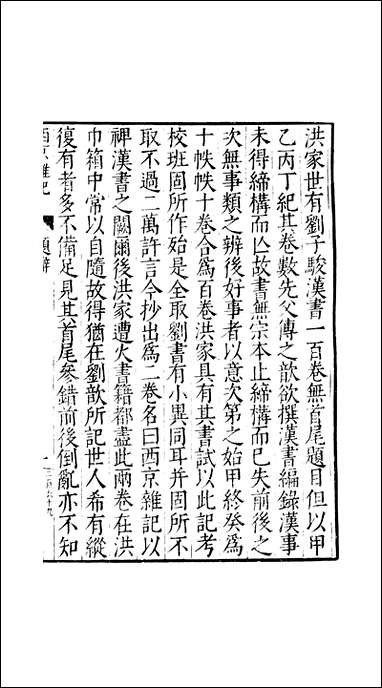 洪家世有劉子駿漢書一百卷無首尾題目但以甲
乙丙丁紀其卷數先父傳之歆欲撰漢書編錄漢事
未得締構而亾故書無宗本止締構而已失前後之
次無事類之辨後好事者以意次第之始甲終癸為
十帙帙十卷合為百卷洪家具有其書試以此記考
校班固所作殆是全取劉書有小異同耳并固所不
取不過二萬許言今抄出為二卷名曰西京雜記以
裨漢書之闕爾後洪家遭火書籍都盡此兩卷在洪
巾箱中常以自隨故得猶在劉歆所記世人希有縱
復有者多不備足見其首尾參錯前後倒亂亦不知
西京雜記
題辭
一